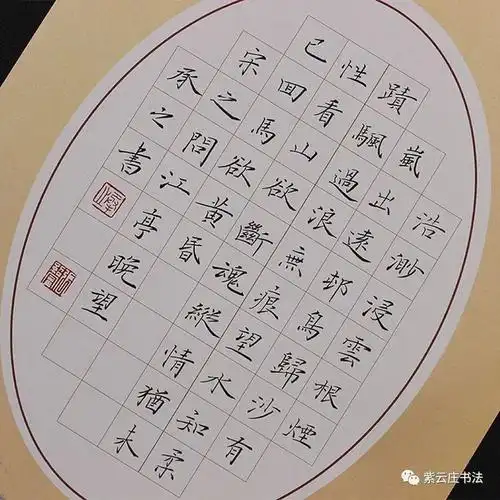 浩渺浸雲根煙
嵐出遠邨鳥歸沙有
蹟颿過浪無痕望水知柔
性看山欲斷魂縱情猶未
已囬馬欲黃昏
宋之問江亭晚望
承之書
紫云庄书法